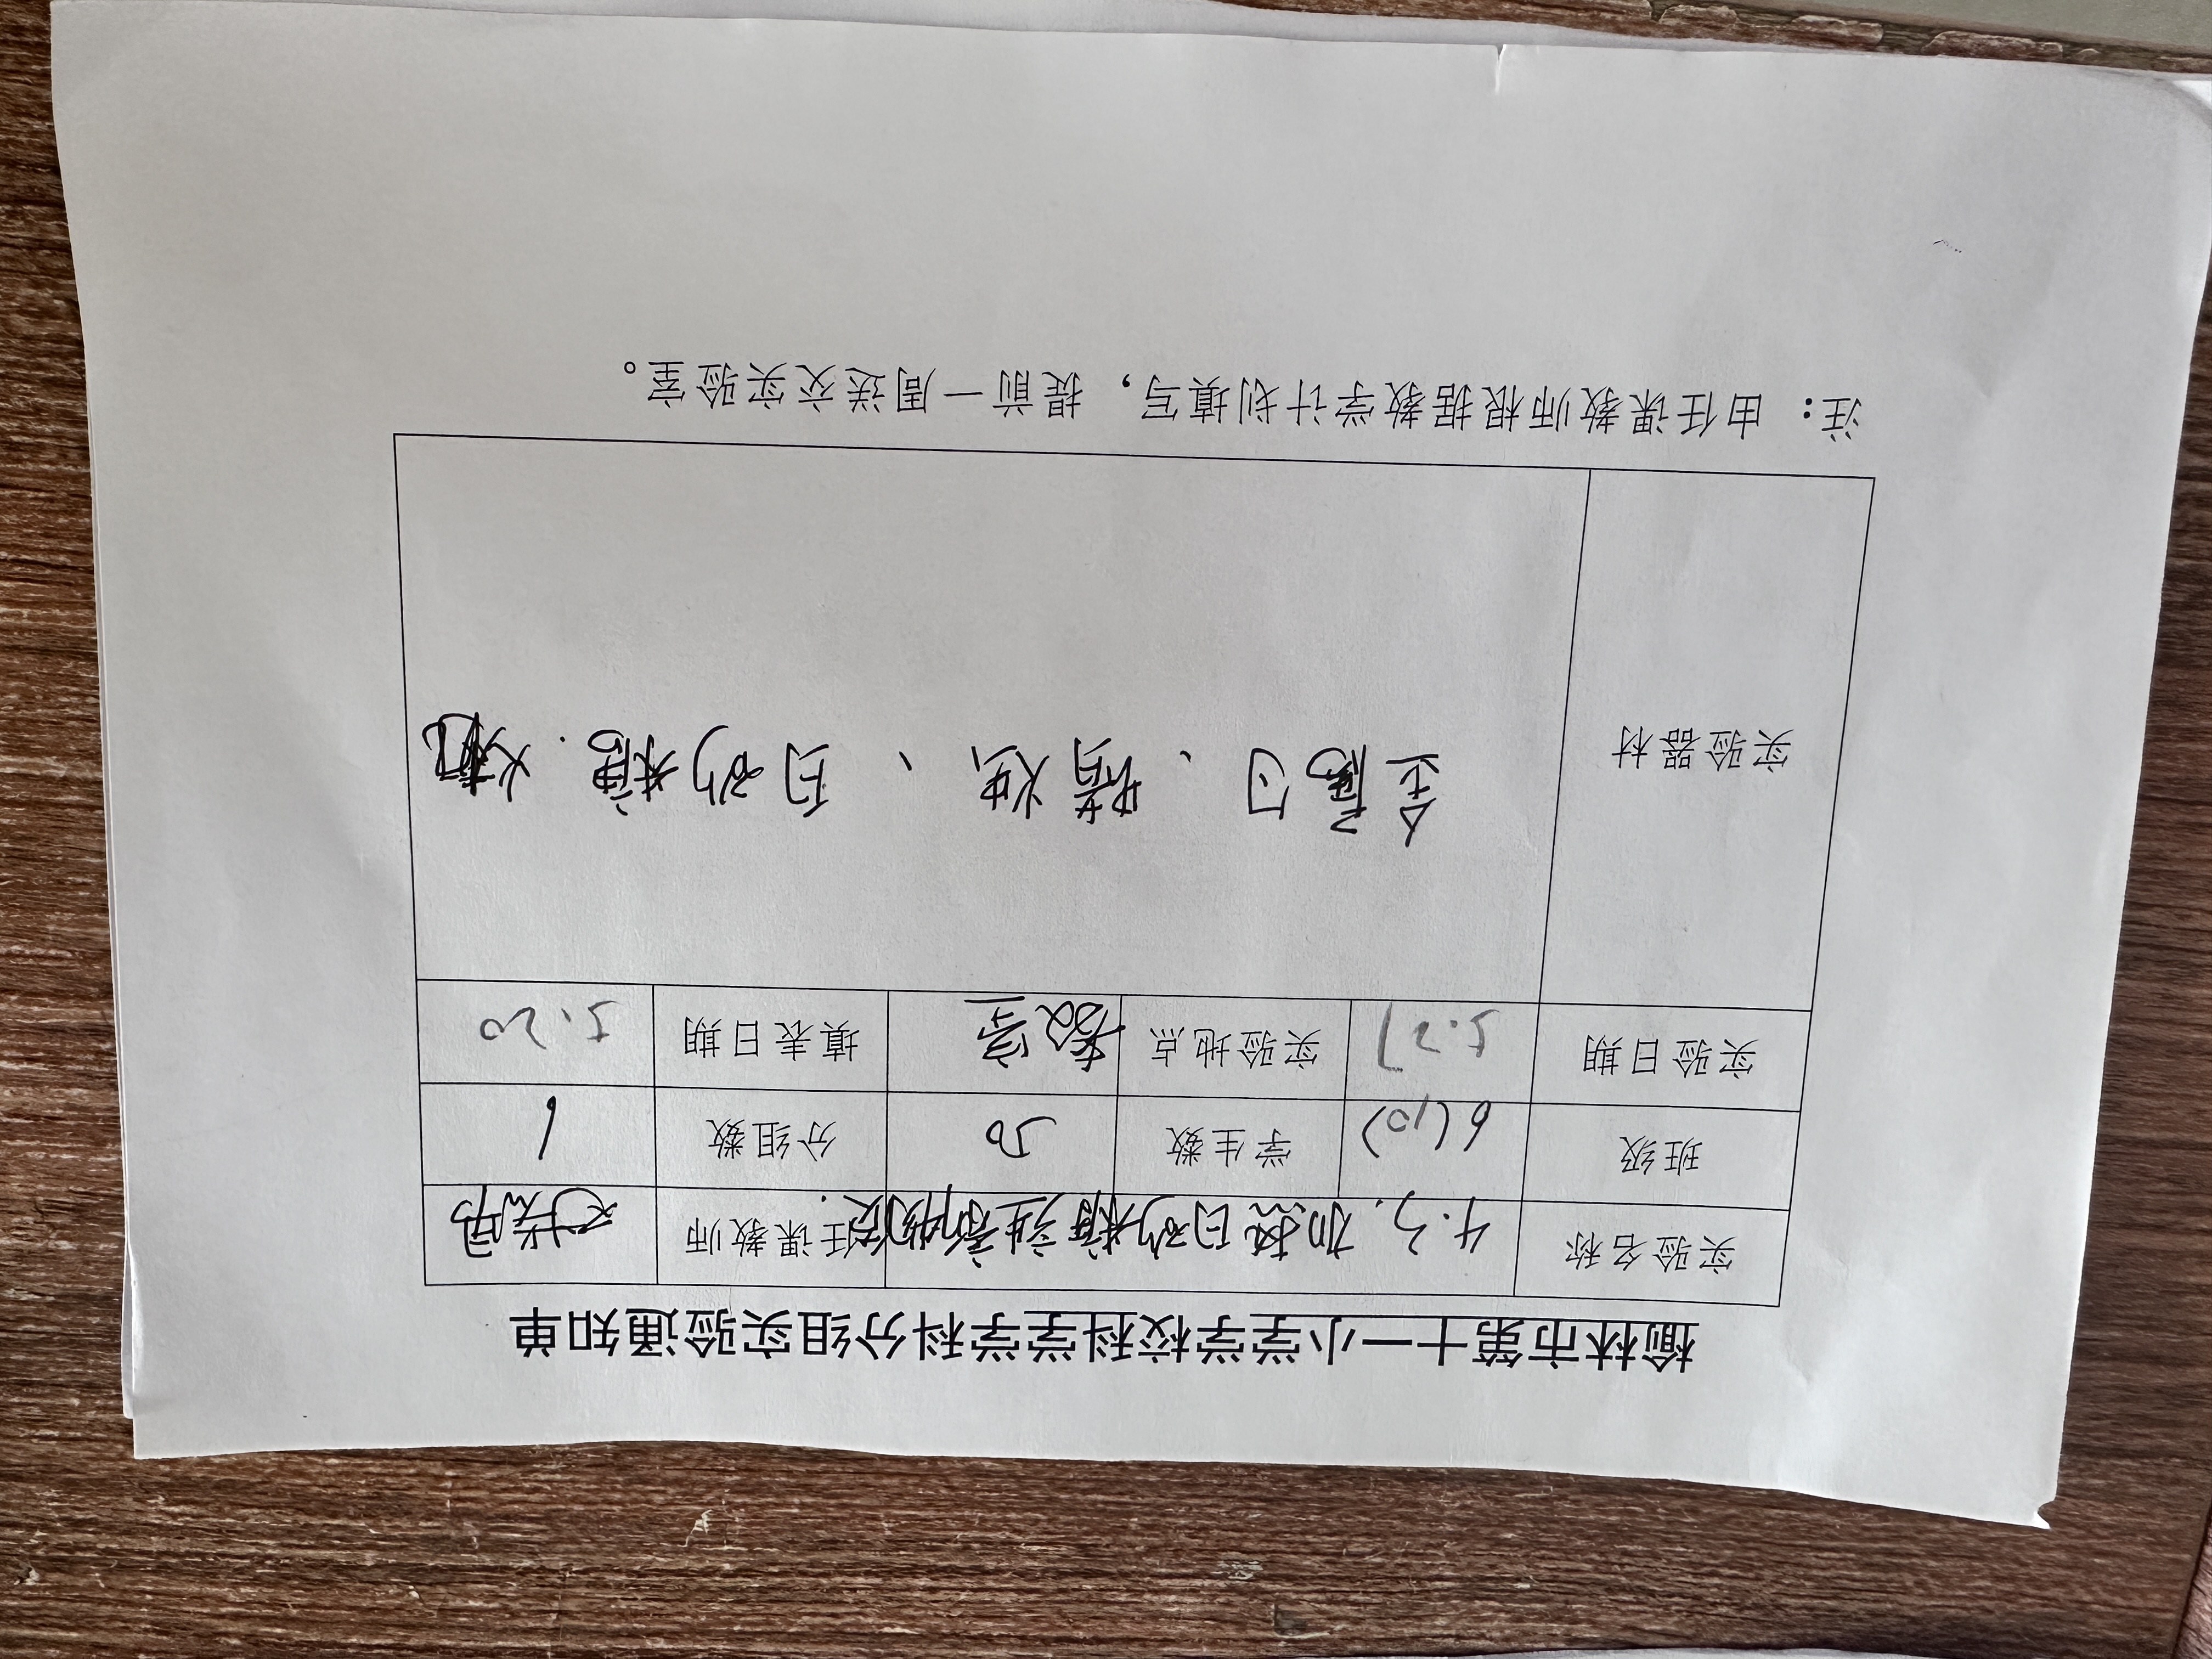 榆林市第十一小学学校科学学科分组实验通知单
实验名称 4.3.加热白砂糖 任课教师
班级 6(10) 学生数 50 分组数 1
实验日期 5.27 实验地点 教室 填表日期 5.20
实验器材 金属勺、蜡烛、白砂糖.火
注：由任课教师根据教学计划填写，提前一周送交实验室。